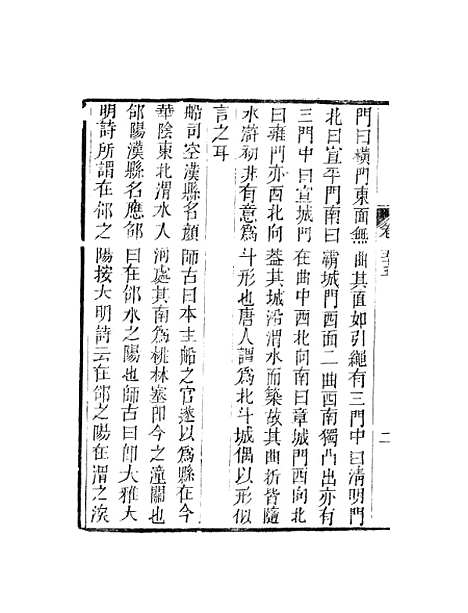 門曰橫門東面無曲其直如引繩有三門中曰淸明門
北曰宣平門南曰霸城門西面二曲西南獨凸出亦有
三門中曰直城門在曲中西北向南曰章城門西向北
曰雍門亦西北向葢其城沿渭水而築故其曲折皆隨
水滸初非有意爲斗形也唐人謂爲北斗城偶以形似
言之耳
船司空漢縣名顏師古曰本主船之官遂以爲縣在今
華陰東北渭水入河處其南爲桃林塞卽今之潼關也
郃陽漢縣名應劭曰在郃水之陽也師古曰卽大雅大
明詩所謂在郃之陽按大明詩云在郃之陽在渭之涘
二